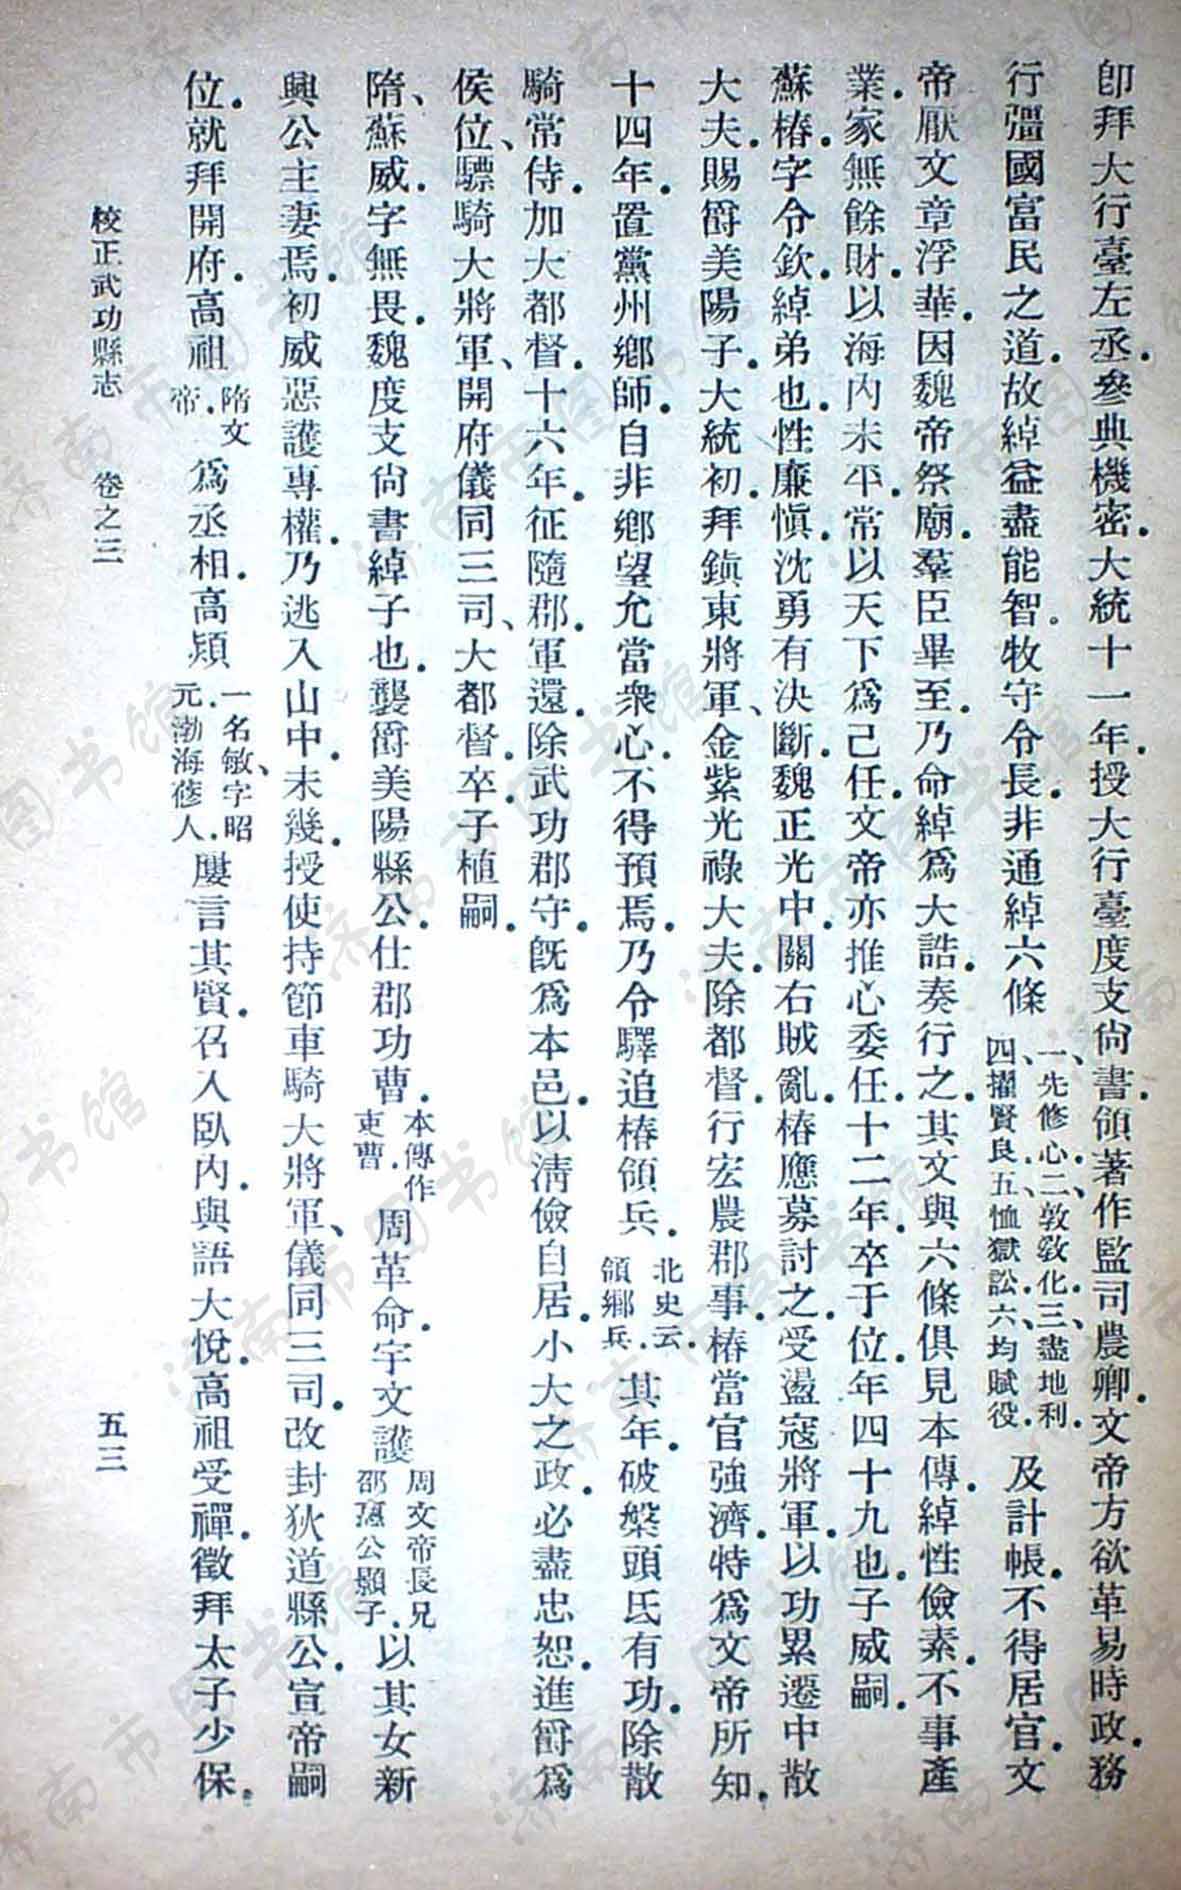 卽拜大行臺左丞．參典機密．大統十一年．授大行臺度支尙書．領著作．監司農卿．文帝方欲革易時政．務
行彊國富民之道．故綽益盡能智．牧守令長．非通綽六條一、先修心．二、敦敎化．三、盡地利．四、擢賢良．五、恤獄訟．六、均賦役．及計帳．不得居官．文
帝厭文章浮華．因魏帝祭廟．羣臣畢至．乃命綽爲大誥．奏行之．其文與六條俱見本傳．綽性儉素．不事產
業．家無餘財．以海內未平．常以天下爲己任．文帝亦推心委任．十二年．卒于位．年四十九也．子威嗣．
蘇椿．字令欽．綽弟也．性廉愼．沈勇有決斷．魏正光中．關右賊亂．椿應募討之．受盪寇將軍．以功累遷中散
大夫．賜爵美陽子．大統初．拜鎭東將軍、金紫光祿大夫．除都督．行宏農郡事．椿當官強濟．特爲文帝所知．
十四年．置黨州鄕師．自非鄕望允當衆心．不得預焉．乃令驛追椿領兵．北史云．領鄕兵．其年．破槃頭氐有功．除散
騎常侍．加大都督．十六年．征隨郡．軍還．除武功郡守．旣爲本邑．以淸儉自居．小大之政．必盡忠恕．進爵爲
侯位、驃騎大將軍、開府儀同三司、大都督．卒．子植嗣．
隋、蘇威．字無畏．魏度支尙書綽子也．襲爵美陽縣公．仕郡功曹．本傳作吏曹．周革命．宇文護周文帝長兄邵惠公顥子．以其女新
興公主妻焉．初威惡護專權．乃逃入山中．未幾．授使持節車騎大將軍、儀同三司．改封狄道縣公．宣帝嗣
位．就拜開府．高祖隋文帝．爲丞相．高熲一名敏、字昭元．渤海蓨人．屢言其賢．召入臥內．與語大悅．高祖受禪．徵拜太子少保．
校正武功縣志　卷之三　五三